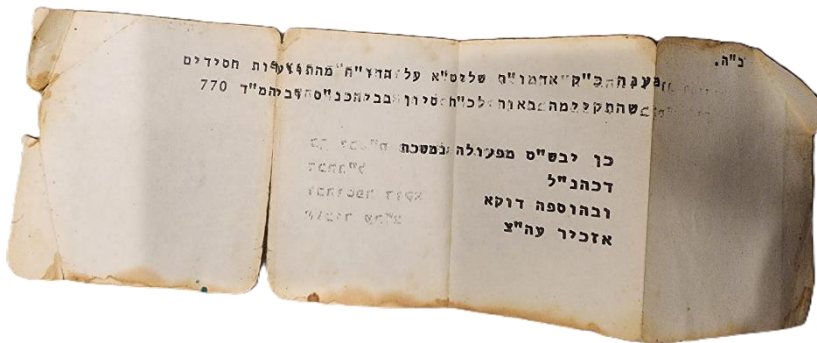 ב"ה.
מענה כ"ק אדמו"ר שליט"א על הדו"ח מהתוועדות חסידים
שהתקיימה באור לכ"ח סיון בביהכנ"ס וביהמ"ד 770
כן יבש"ט מפעולה נמשכת
דכהנ"ל
ובהוספה דוקא
אזכיר עה"צ